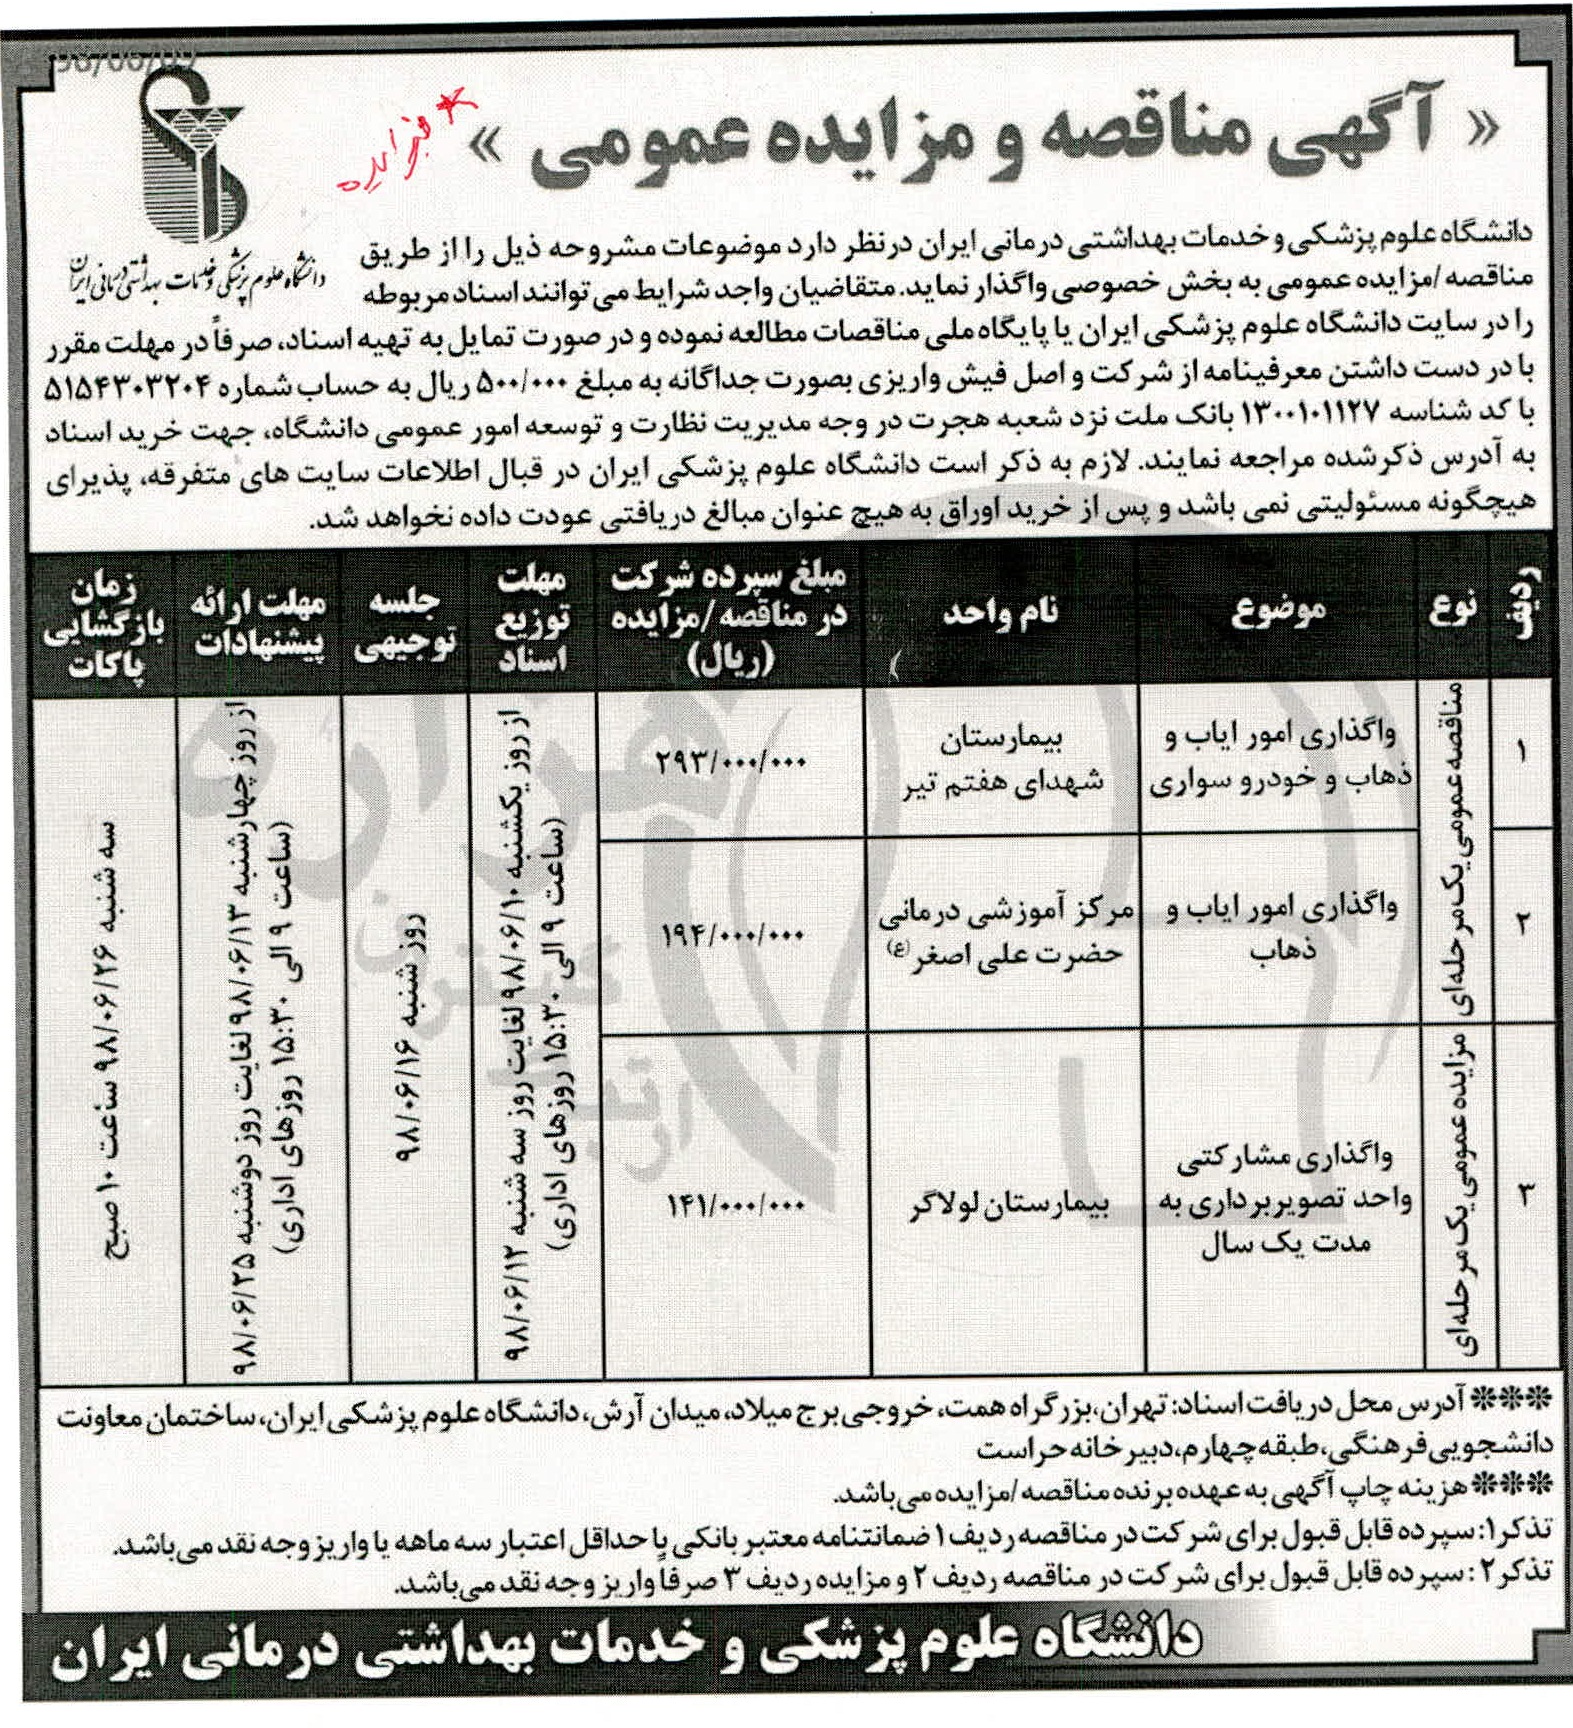 98/06/09
« آگهی مناقصه و مزایده عمومی »
دانشگاه علوم پزشکی و خدمات بهداشتی درمانی ایران
دانشگاه علوم پزشکی و خدمات بهداشتی درمانی ایران درنظر دارد موضوعات مشروحه ذیل را از طریق
مناقصه/مزایده عمومی به بخش خصوصی واگذار نماید. متقاضیان واجد شرایط می توانند اسناد مربوطه
را در سایت دانشگاه علوم پزشکی ایران یا پایگاه ملی مناقصات مطالعه نموده و در صورت تمایل به تهیه اسناد، صرفاً در مهلت مقرر
با در دست داشتن معرفینامه از شرکت و اصل فیش واریزی بصورت جداگانه به مبلغ ۵۰۰/۰۰۰ ریال به حساب شماره ۵۱۵۴۳۰۳۲۰۴
با کد شناسه ۱۳۰۰۱۰۱۱۲۷ بانک ملت نزد شعبه هجرت در وجه مدیریت نظارت و توسعه امور عمومی دانشگاه، جهت خرید اسناد
به آدرس ذکرشده مراجعه نمایند. لازم به ذکر است دانشگاه علوم پزشکی ایران در قبال اطلاعات سایت های متفرقه، پذیرای
هیچگونه مسئولیتی نمی باشد و پس از خرید اوراق به هیچ عنوان مبالغ دریافتی عودت داده نخواهد شد.
ردیف
نوع
موضوع
نام واحد
مبلغ سپرده شرکت
در مناقصه/مزایده
(ریال)
مهلت
توزیع
اسناد
جلسه
توجیهی
مهلت ارائه
پیشنهادات
زمان
بازگشایی
پاکات
۱
مناقصه عمومی یک مرحله‌ای
واگذاری امور ایاب و
ذهاب و خودرو سواری
بیمارستان
شهدای هفتم تیر
۲۹۳/۰۰۰/۰۰۰
از روز یکشنبه ۹۸/۰۶/۱۰ لغایت روز سه شنبه ۹۸/۰۶/۱۲
(ساعت ۹ الی ۱۵:۳۰ روزهای اداری)
روز شنبه ۹۸/۰۶/۱۶
از روز چهارشنبه ۹۸/۰۶/۱۳ لغایت روز دوشنبه ۹۸/۰۶/۲۵
(ساعت ۹ الی ۱۵:۳۰ روزهای اداری)
سه شنبه ۹۸/۰۶/۲۶ ساعت ۱۰ صبح
۲
واگذاری امور ایاب و
ذهاب
مرکز آموزشی درمانی
حضرت علی اصغر (ع)
۱۹۴/۰۰۰/۰۰۰
۳
مزایده عمومی یک مرحله‌ای
واگذاری مشارکتی
واحد تصویربرداری به
مدت یک سال
بیمارستان لولاگر
۱۴۱/۰۰۰/۰۰۰
*** آدرس محل دریافت اسناد: تهران، بزرگراه همت، خروجی برج میلاد، میدان آرش، دانشگاه علوم پزشکی ایران، ساختمان معاونت
دانشجویی فرهنگی، طبقه چهارم، دبیرخانه حراست
*** هزینه چاپ آگهی به عهده برنده مناقصه/مزایده می‌باشد.
تذکر۱: سپرده قابل قبول برای شرکت در مناقصه ردیف ۱ ضمانتنامه معتبر بانکی با حداقل اعتبار سه ماهه یا واریز وجه نقد می‌باشد.
تذکر۲: سپرده قابل قبول برای شرکت در مناقصه ردیف ۲ و مزایده ردیف ۳ صرفا واریز وجه نقد می‌باشد.
دانشگاه علوم پزشکی و خدمات بهداشتی درمانی ایران